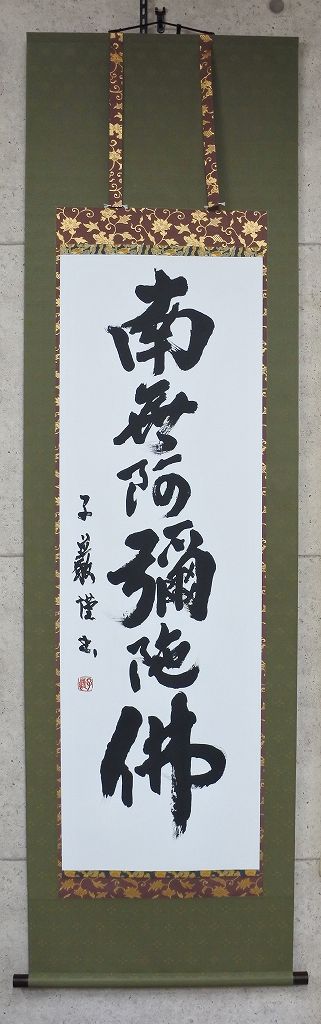 南無阿彌陀佛
子巖謹書